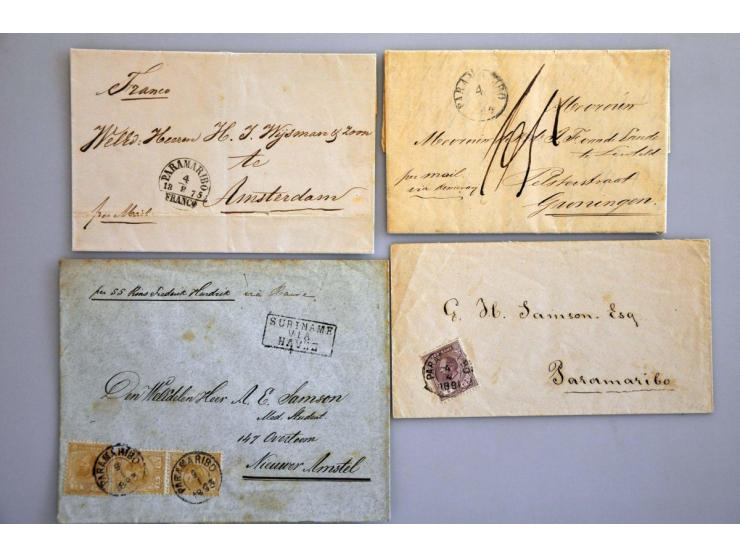 Franco
WelEd: Heeren H. I. Wijsman & Zoon
te
Amsterdam
per Mail
PARAMARIBO
4
18 75
FRANCO
PARAMARIBO
4
Mevrouw
Mevrouw
per mail
via
Pelsterstraat
Groningen.
per SS Prins Frederik Hendrik via Havre
SURINAME
VIA
HAVRE
Den WelEdelen Heer A. E. Samson
Med. Student.
147 Overtoom
Nieuwer Amstel
PARAMARIBO
1893
PARAMARIBO
1893
G. H. Samson. Esq
Paramaribo
4
1891